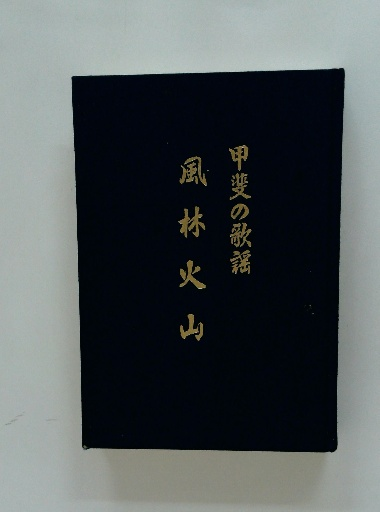 甲斐の歌謡
風林火山